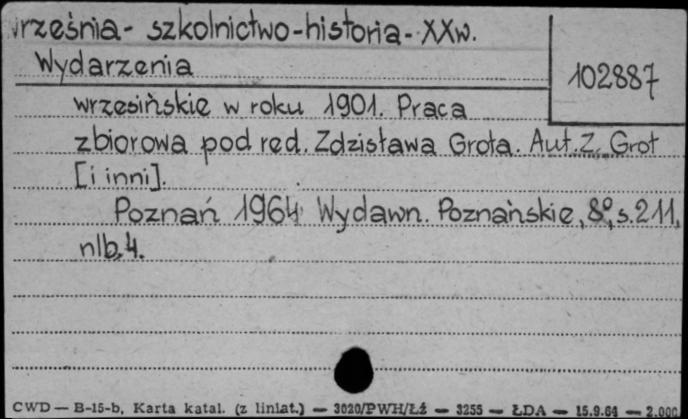 września - szkolnictwo - historia - XXw.
Wydarzenia
102887
wrzesińskie w roku 1901. Praca
zbiorowa pod red. Zdzisława Grota. Aut. Z. Grot
[i inni].
Poznań 1964 Wydawn. Poznańskie, 8°, s. 211,
nlb. 4.
CWD — B-15-b, Karta katal. (z liniat.) — 3020/PWH/Łż — 3255 — ŁDA — 15.9.64 — 2.000